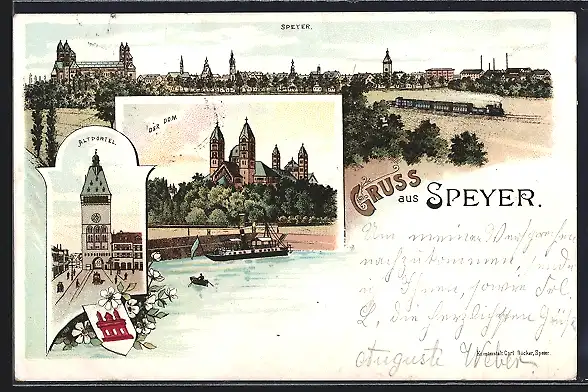 SPEYER.
DER DOM
ALTPORTEL
GRUSS aus SPEYER.
Um meinem Versprechen
nachzukommen, sende
ich Ihnen, sowie Frl.
L, die herzlichsten Grüße
Auguste Weber.
Kunstanstalt Carl Rücker, Speier.